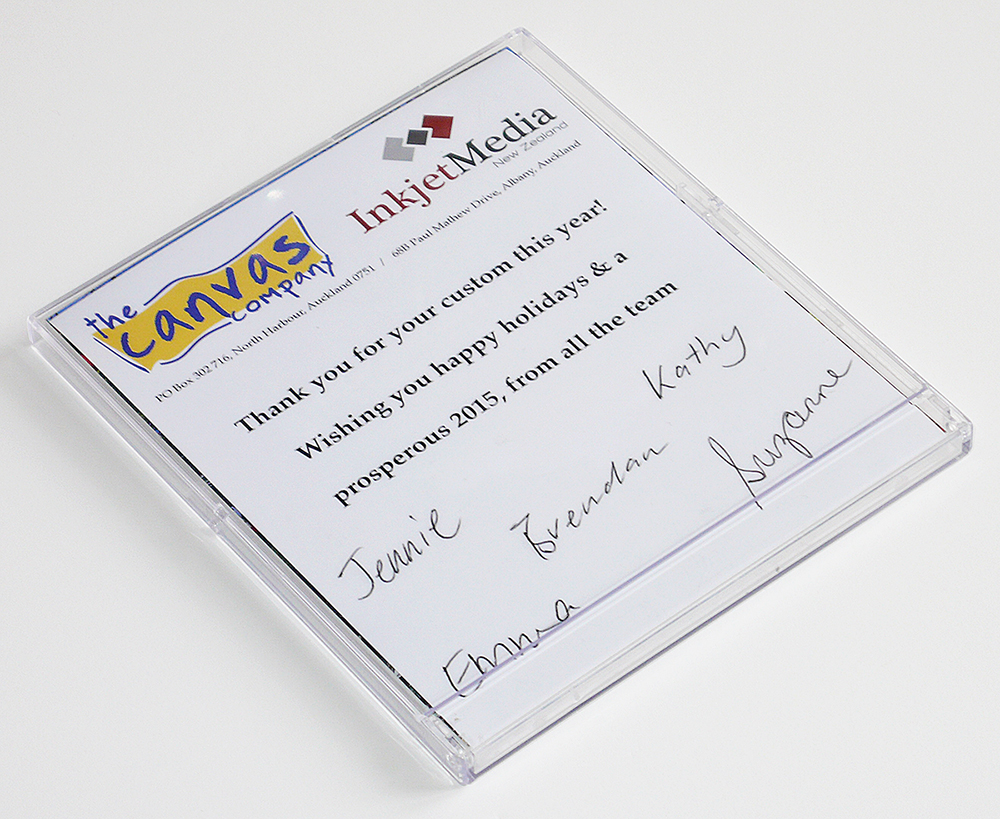 the
canvas
company
InkjetMedia
New Zealand
PO Box 302 716, North Harbour, Auckland 0751 / 68B Paul Mathew Drive, Albany, Auckland
Thank you for your custom this year!
Wishing you happy holidays & a
prosperous 2015, from all the team
Kathy
Jennie Brendan Suzanne
Emma